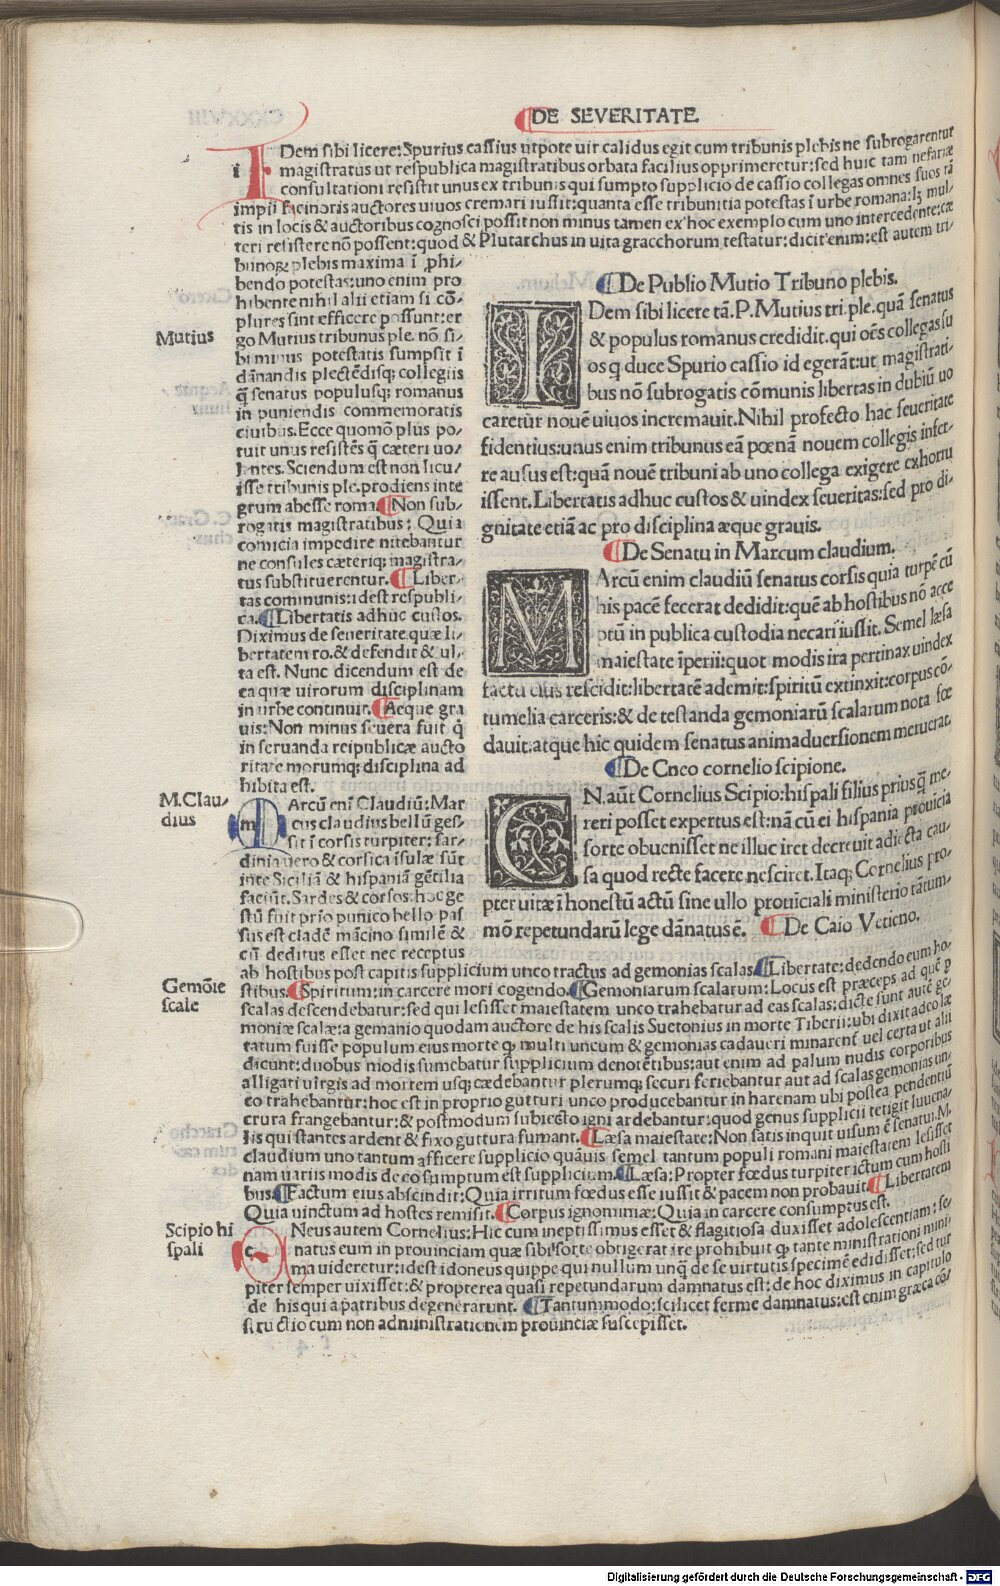 DE SEVERITATE
IDem sibi licere: Spurius cassius utpote uir calidus egit cum tribunis plebis ne subrogarentur
magistratus ut respublica magistratibus orbata facilius opprimeretur: sed huic tam nefariæ
consultationi resistit unus ex tribunis qui sumpto supplicio de cassio collegas omnes suos tā
impii facinoris auctores uiuos cremari iussit: quanta esse tribunitia potestas ī urbe romana: lꝫ mul/
tis in locis & auctoribus cognosci possit non minus tamen ex hoc exemplo cum uno intercedente: cæ
teri resistere nō possent: quod & Plutarchus in uita gracchorum testatur: dicit enim: est autem tri/
bunorꝫ plebis maxima ī ꝓhi/
bendo potestas: uno enim pro
hibente nihil alii etiam si cō/
plures sint efficere possunt: er
go Mutius tribunus ple. nō si/
bi minus potestatis sumpsit ī
dānandis plectēdisqꝫ collegiis
q̄ senatus populusqꝫ romanus
in puniendis commemoratis
ciuibus. Ecce quomō plus po/
tuit unus resistēs q̄ cæteri uo/
lentes. Sciendum est non licu/
isse tribunis ple. prodiens inte
grum abesse roma. Non sub/
rogatis magistratibus: Quia
comicia impedire nitebantur
ne consules cæteriqꝫ magistra/
tus substituerentur. Liber/
tas communis: idest respubli/
ca. Libertatis adhuc custos.
Diximus de seueritate quæ li/
bertatem ro. & defendit & ul/
ta est. Nunc dicendum est de
ea quæ uirorum disciplinam
in urbe continuit. Aeque gra
uis: Non minus seuera fuit q̄
in seruanda reipublicæ aucto
ritate morumqꝫ disciplina ad
hibita est.
Mutius
De Publio Mutio Tribuno plebis.
IDem sibi licere tā. P. Mutius tri. ple. quā senatus
& populus romanus credidit. qui oēs collegas su
os q̄ duce Spurio cassio id egerāt: ut magistrati/
bus nō subrogatis cōmunis libertas in dubiū uo
caretur nouē uiuos incremauit. Nihil profecto hac seueritate
fidentius: unus enim tribunus eā pœnā nouem collegis infer/
re ausus est: quā nouē tribuni ab uno collega exigere exhorru
issent. Libertatis adhuc custos & uindex seueritas: sed pro di/
gnitate etiā ac pro disciplina æque grauis.
De Senatu in Marcum claudium.
MArcū enim claudiū senatus corsis quia turpē cū
his pacē fecerat dedidit: quē ab hostibus nō acce
ptū in publica custodia necari iussit. Semel læsa
maiestate īperii: quot modis ira pertinax uindex
factū eius rescidit: libertatē ademit: spiritū extinxit: corpus cō/
tumelia carceris: & de testanda gemoniarū scalarum nota fœ
dauit. atque hic quidem senatus animaduersionem meruerat.
De Cneo cornelio scipione.
CN. aūt Cornelius Scipio: hispali filius prius q̄ me/
reri posset expertus est: nā cū ei hispania ꝓuīcia
sorte obuenisset ne illuc iret decreuit adiecta cau/
sa quod recte facere nesciret. Itaqꝫ Cornelius pro/
pter uitæ īhonestū actū sine ullo prouīciali ministerio tātum/
mō repetundarū lege dānatus ē. De Caio Vetieno.
M. Clau/
dius
mArcū enī Claudiū: Mar
cus claudius bellū ges/
sit ī corsis turpiter: sar/
dinia uero & corsica īsulæ sūt
inte Siciliā & hispaniā gētilia
faciūt. Sardes & corsos: hoc ge
stū fuit prio punico bello pas
sus est cladē māncino similē &
cū deditus esset nec receptus
ab hostibus post capitis supplicium unco tractus ad gemonias scalas. Libertate: dedendo eum ho/
stibus. Spiritum: in carcere mori cogendo. Gemoniarum scalarum: Locus est præceps ad quē ꝑ
scalas descendebatur: sed qui lesisset maiestatem unco trahebatur ad eas scalas: dicte sunt autē ge/
moniæ scalæ: a gemanio quodam auctore de his scalis Suetonius in morte Tiberii: ubi dixit adeo læ
tatum fuisse populum eius morte qꝫ multi uncum & gemonias cadaueri minarent uel certa ut alii
dicunt: duobus modis sumebatur supplicium denotētibus: aut enim ad palum nudis corporibus
alligati uirgis ad mortem usqꝫ cædebantur plerumqꝫ securi feriebantur aut ad scalas gemonias unc
eo trahebantur: hoc est in proprio gutturi unco producebantur in harenam ubi postea pendentiū
crura frangebantur: & postmodum subiecto igni ardebantur: quod genus supplicii tetigit Iuuena/
lis qui stantes ardent & fixo guttura fumant. Læsa maiestate: Non satis inquit uisum ē senatui. M.
claudium uno tantum afficere supplicio quāuis semel tantum populi romani maiestatem lesisset
nam uariis modis de eo sumptum est supplicium. Læsa: Propter fœdus turpiter ictum cum hosti
bus. Factum eius abscindit: Quia irritum fœdus esse iussit & pacem non probauit. Libertatem
Quia uinctum ad hostes remisit. Corpus ignominiæ: Quia in carcere consumptus est.
Gemōie
scale
Scipio hi
spali
cNeus autem Cornelius: Hic cum ineptissimus esset & flagitiosa duxisset adolescentiam: se/
natus eum in prouinciam quæ sibi sorte obtigerat ire prohibuit qꝫ tante ministrationi mini/
ma uideretur: idest idoneus quippe qui nullum unq̄ de se uirtutis specimē edidisset: sed tur
piter semper uixisset: & propterea quasi repetundarum damnatus est: de hoc diximus in capitulo
de his qui a patribus degenerarunt. Tantummodo: scilicet ferme damnatus: est enim græca cōs/
structio cum non administrationem prouinciæ suscepisset.
Digitalisierung gefördert durch die Deutsche Forschungsgemeinschaft - DFG